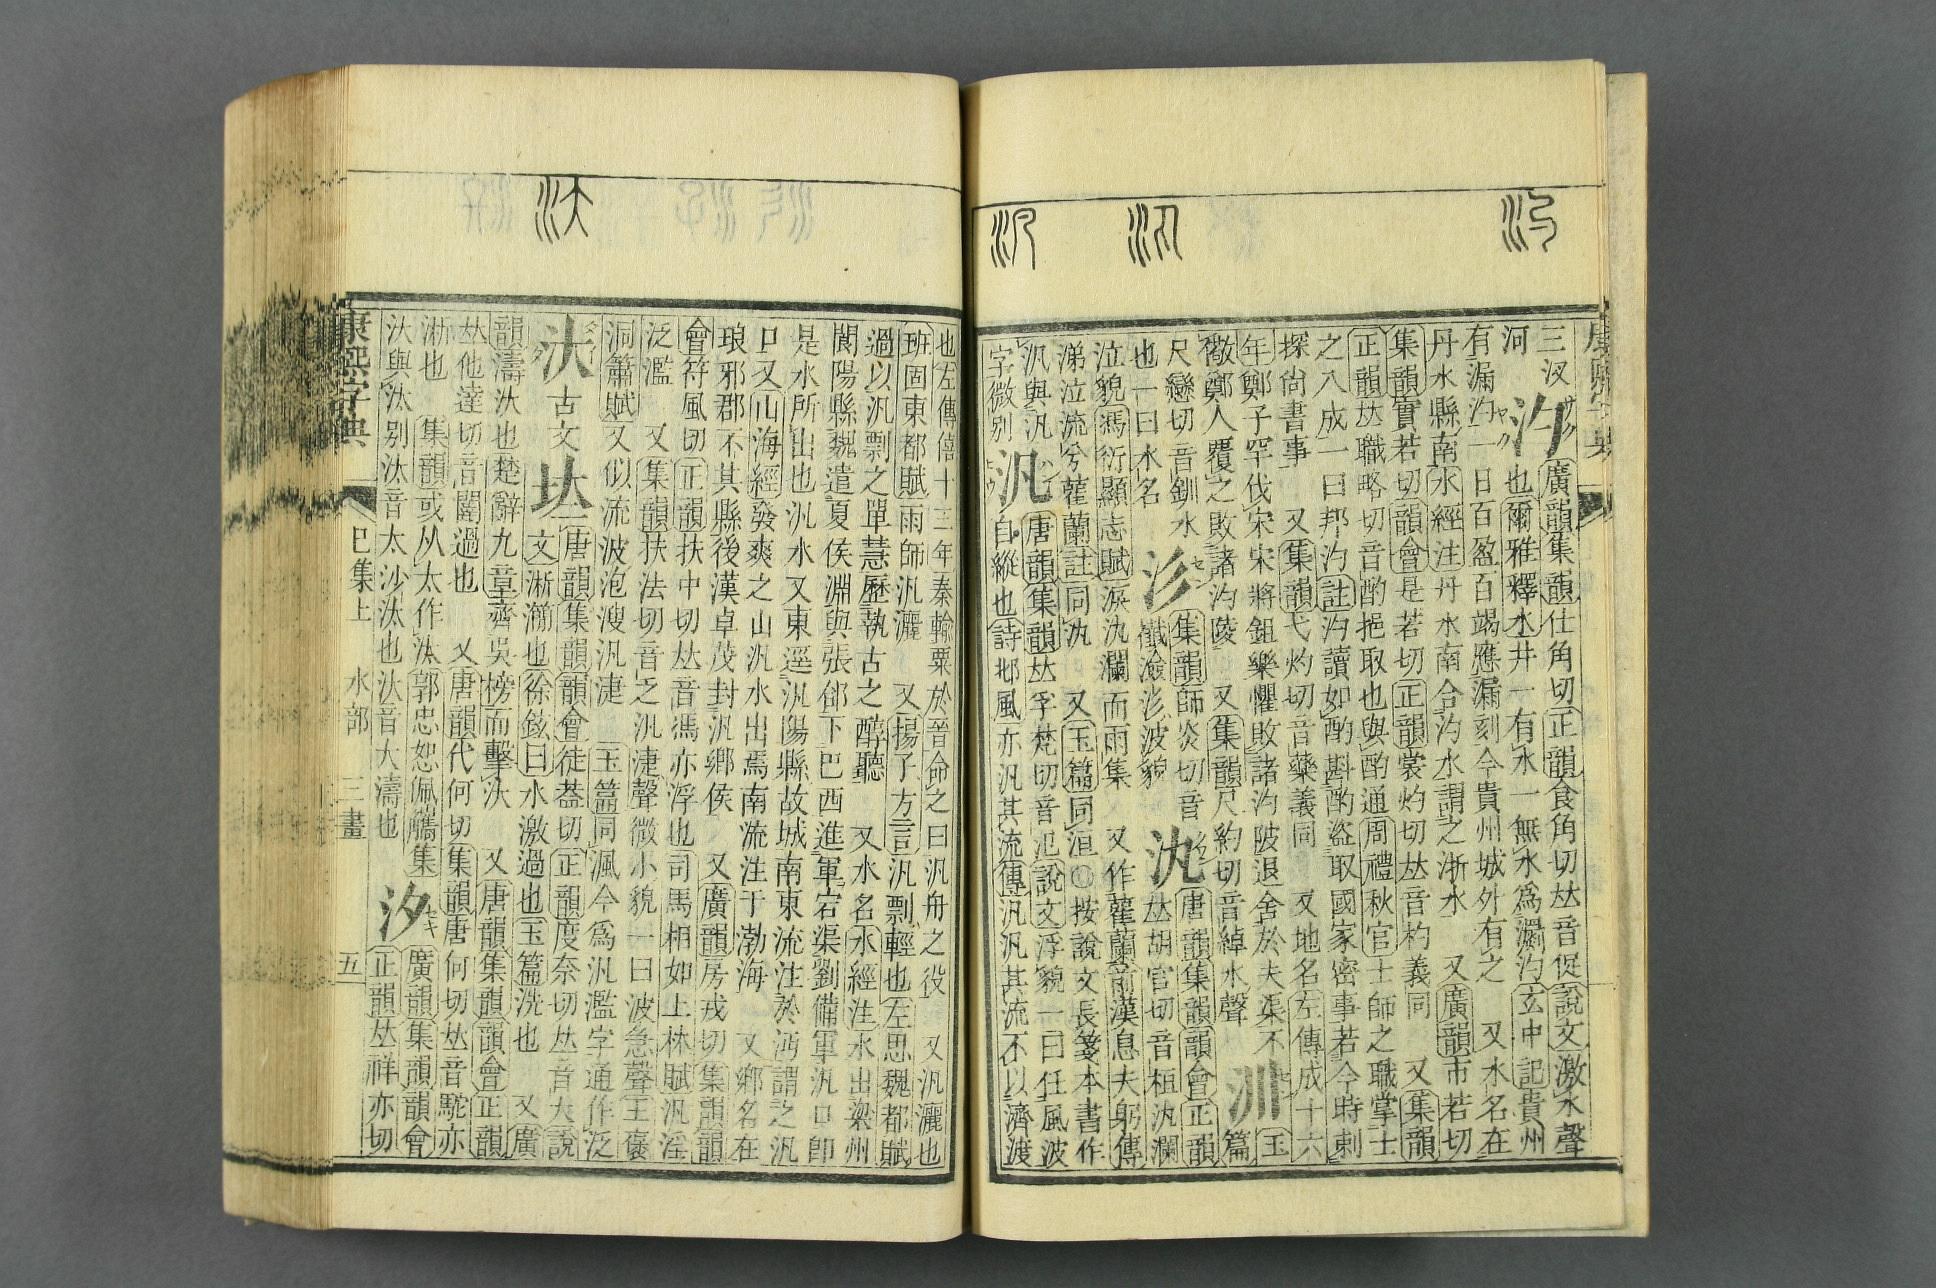 三汊
汋
廣韻集韻仕角切正韻食角切𠀤音浞說文激水聲
河
也爾雅釋水井一有水一無水爲瀱汋玄中記貴州
有漏汋一日百盈百竭應漏刻今貴州城外有之 又水名在
丹水縣南水經注丹水南合汋水謂之浙水 又廣韻市若切
集韻實若切韻會是若切正韻裳灼切𠀤音杓義同 又集韻
正韻𠀤職略切音酌挹取也與酌通周禮秋官士師之職掌士
之八成一曰邦汋註汋讀如酌斟酌盜取國家密事若今時刺
探尚書事 又集韻弋灼切音藥義同 又地名左傳成十六
年鄭子罕伐宋宋將鉏樂懼敗諸汋陂退舍於夫渠不
汌
玉
儆鄭人覆之敗諸汋陵 又集韻尺約切音綽水聲
篇
尺戀切音釧水
汃
集韻師炎切音
汍
唐韻集韻韻會正韻
也一曰水名
纖㵌汃波貌
𠀤胡官切音桓汍瀾
泣貌馮衍顯志賦淚汍瀾而雨集 又作雚蘭前漢息夫躬傳
涕泣流兮雚蘭註同汍 又玉篇同洹○按說文長箋本書作
汎與汎
汎
唐韻集韻𠀤孚梵切音氾說文浮貌一曰任風波
字微別
自縱也詩邶風亦汎其流傳汎汎其流不以濟渡
也左傳僖十三年秦輸粟於晉命之曰汎舟之役 又汎灑也
班固東都賦雨師汎灑 又揚子方言汎剽輕也左思魏都賦
過以汎剽之單慧歷執古之醇聽 又水名水經注水出梁州
閬陽縣魏遣夏侯淵與張郃下巴西進軍宕渠劉備軍汎口卽
是水所出也汎水又東逕汎陽縣故城南東流注於沔謂之汎
口又山海經發爽之山汎水出焉南流注于渤海 又鄉名在
琅邪郡不其縣後漢卓茂封汎鄉侯 又廣韻房戎切集韻韻
會符風切正韻扶中切𠀤音馮亦浮也司馬相如上林賦汎淫
泛濫 又集韻扶法切音乏汎㵗聲微小貌一曰波急聲王褒
洞簫賦又似流波泡溲汎㵗 玉篇同渢今爲汎濫字通作泛
汏
古文
𡘲
唐韻集韻韻會徒蓋切正韻度奈切𠀤音大說
文淅灡也徐鉉曰水激過也玉篇洗也 又廣
韻濤汏也楚辭九章齊吳榜而擊汏 又唐韻集韻韻會正韻
𠀤他達切音闥過也 又唐韻代何切集韻唐何切𠀤音駝亦
淅也 集韻或从太作汰郭忠恕佩觿集
汐
廣韻集韻韻會
汏與汰別汰音太沙汰也汏音大濤也
正韻𠀤祥亦切
康熙字典
巳集上 水部 三畫
五